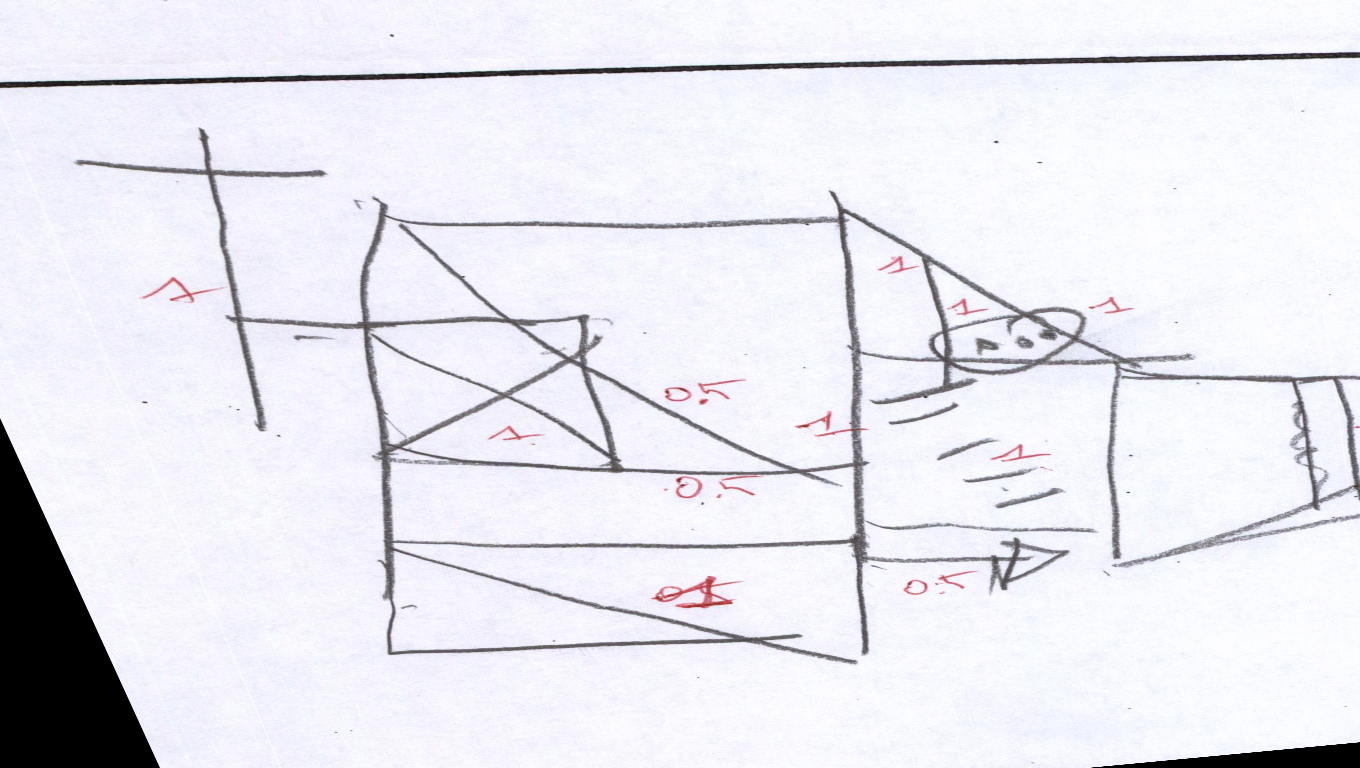 1
1
1
1
0.5
1
1
1
0.5
0.5